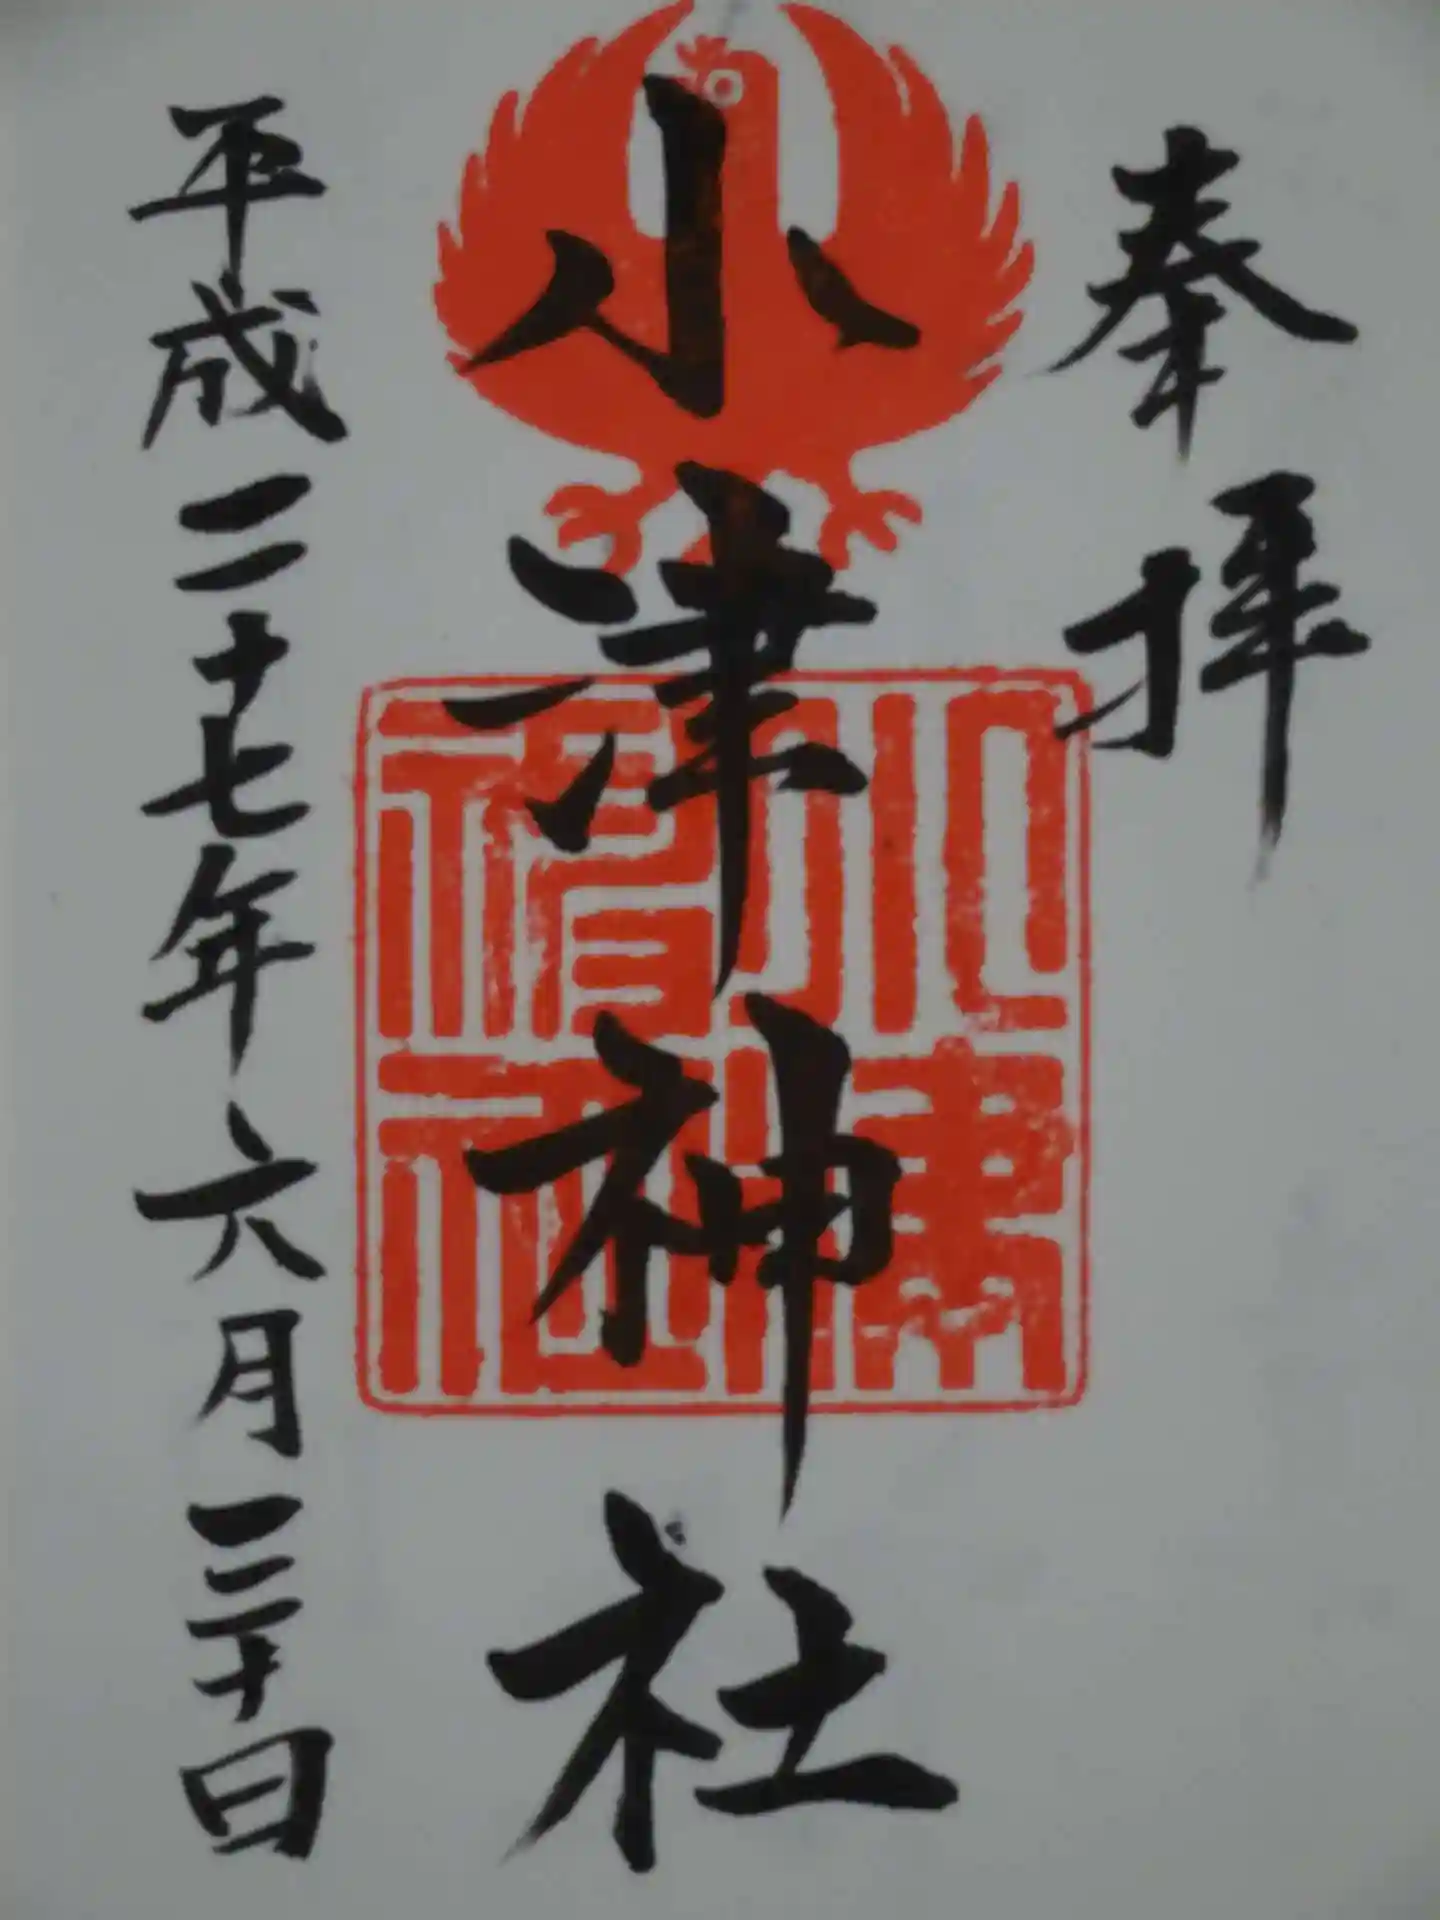 奉拝
小津神社
平成二十七年六月三十日
小津神社